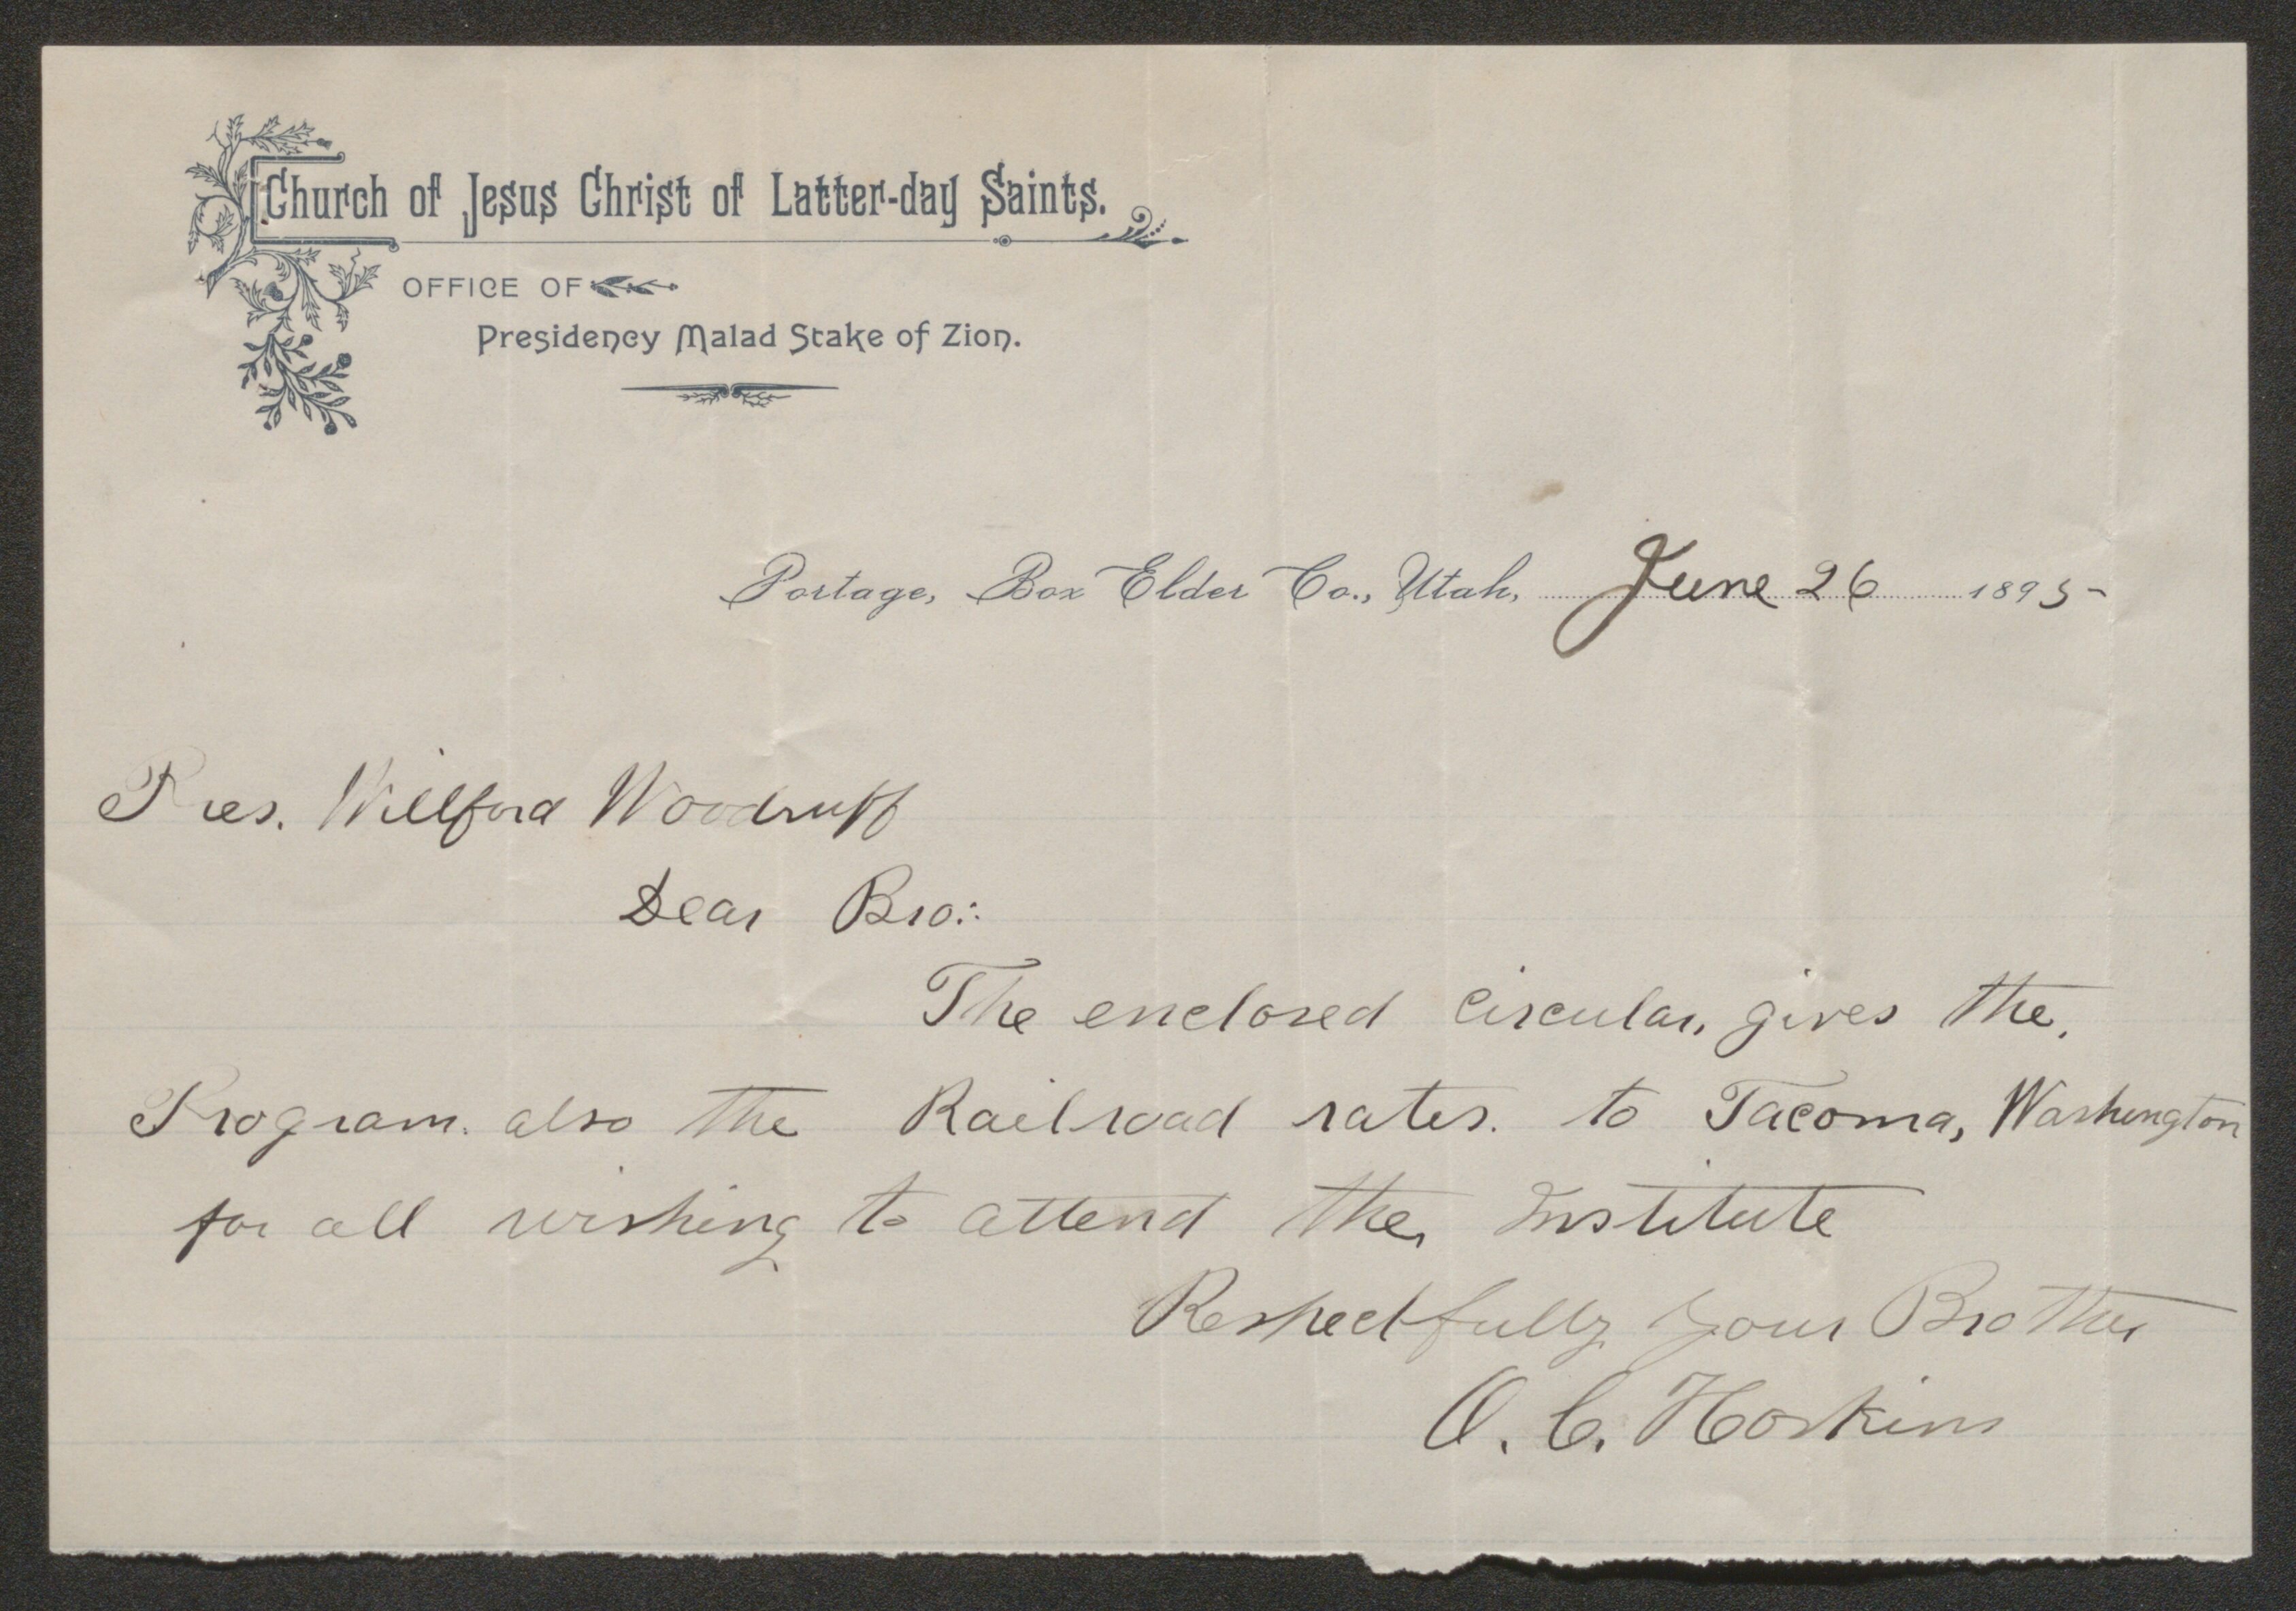 Church of Jesus Christ of Latter-day Saints.
OFFICE OF
Presidency Malad Stake of Zion.
Portage, Box Elder Co., Utah, June 26 1895-
Pres. Willford Woodruff
Dear Bro.:
The enclosed circular, gives the,
Program. also the Railroad rates. to Tacoma, Washington
for all wishing to attend the, Institute
Respectfully your Brother
O. C. Hoskins